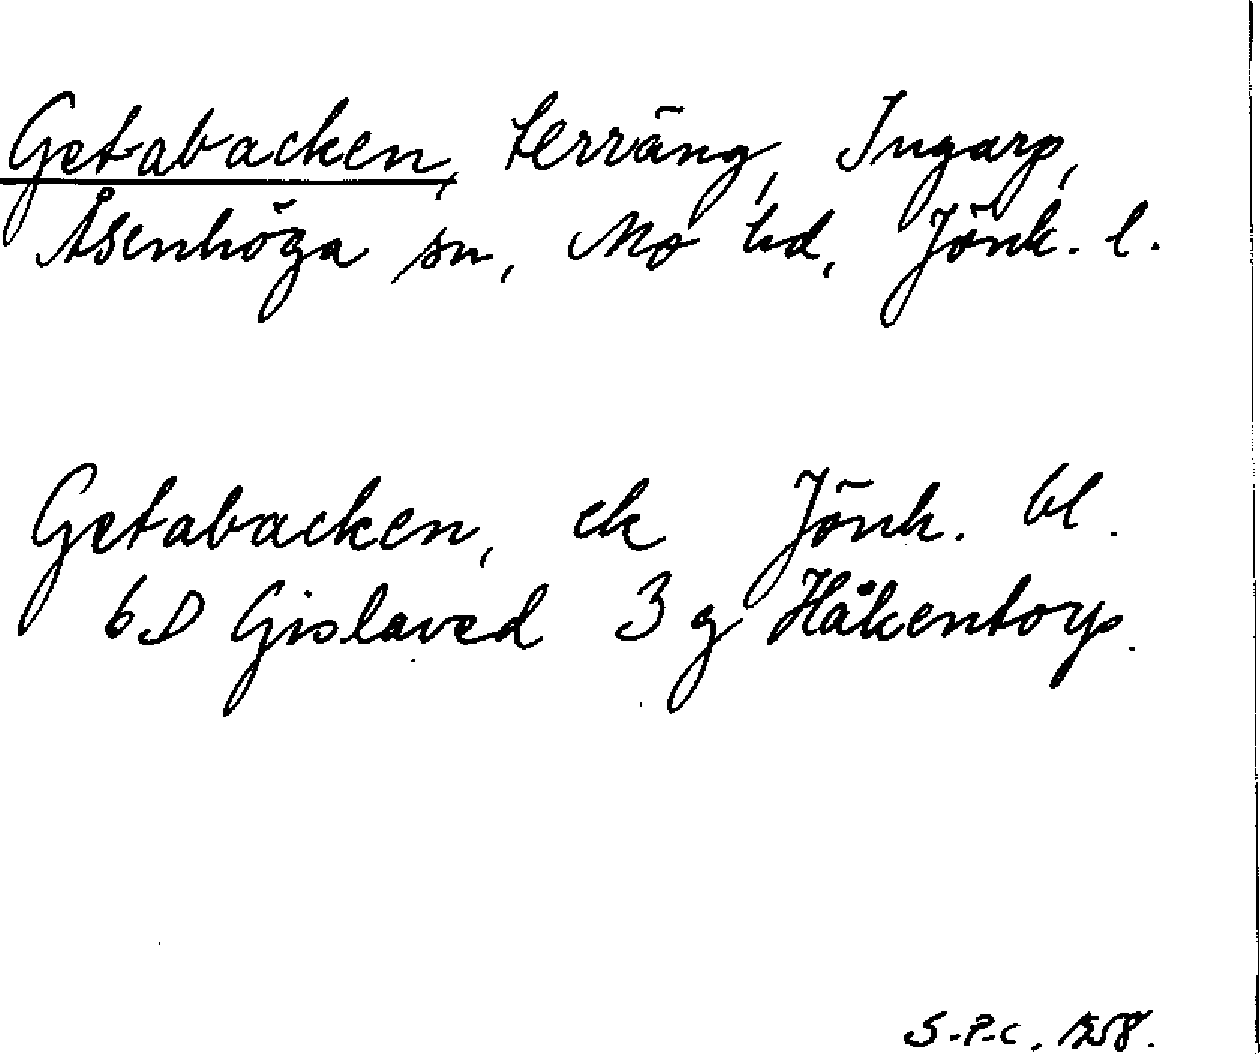 Getabacken, terräng, Ingarp,
Åsenhöga sn, Mo hd, Jönk. l.
Getabacken, ek Jönk. bl.
6D Gislaved 3g Håkentorp.
S-P-C. 1258.